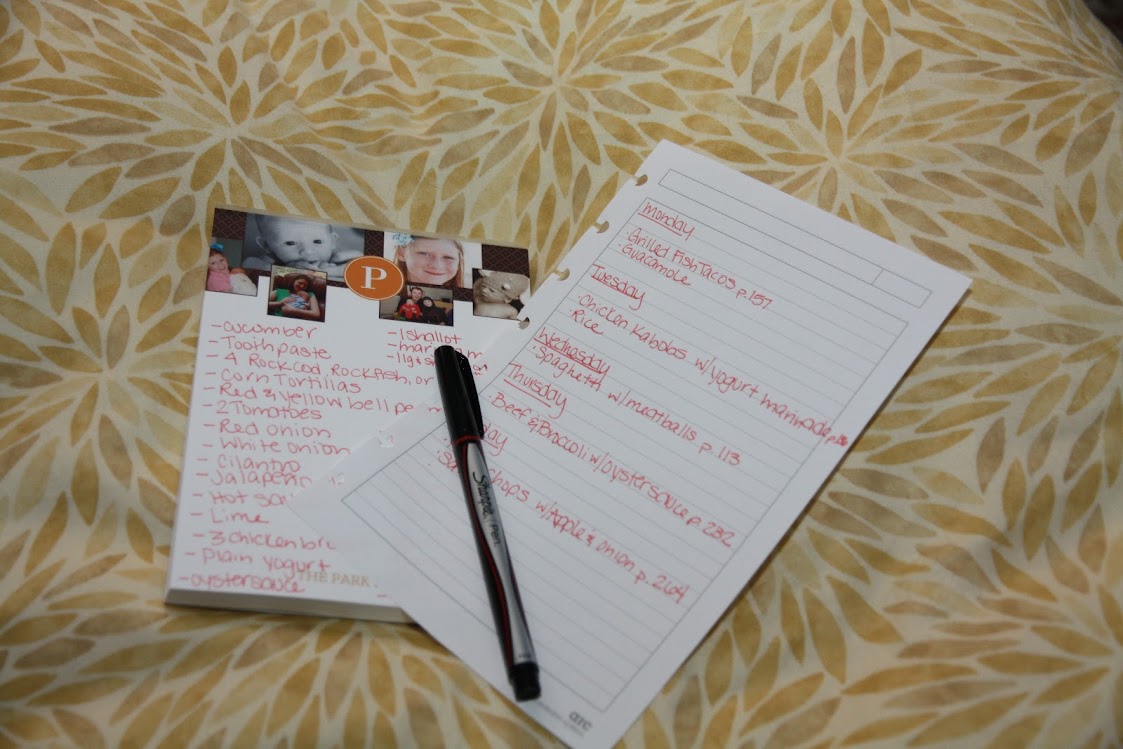 P
-cucumber
-Toothpaste
-4 Rockcod, Rockfish, or
-Corn Tortillas
-Red & yellow bell
-2 Tomatoes
-Red onion
-White onion
-Cilantro
-Jalapeno
-Hot
-Lime
-3 chicken
-plain yogurt
-oystersauce
THE PARK
-1 shallot
Monday
·Grilled Fish Tacos p.157
·Guacamole
Tuesday
·Chicken Kabobs w/yogurt marinade
·Rice
Wednesday
·Spaghetti w/meatballs p.113
Thursday
·Beef & Broccoli w/oystersauce p.232
chops w/Apple & onion p.264
Sharpie Pen
arc